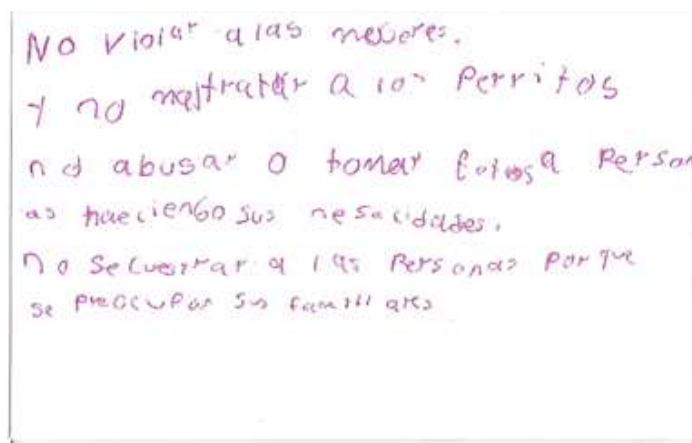 No violar a las menores.
Y no maltratar a los Perritos
no abusar o tomar fotos a Person
as haeciendo sus nesecidades.
no secuestrar a las Personas Por que
se preocupan sus familiares